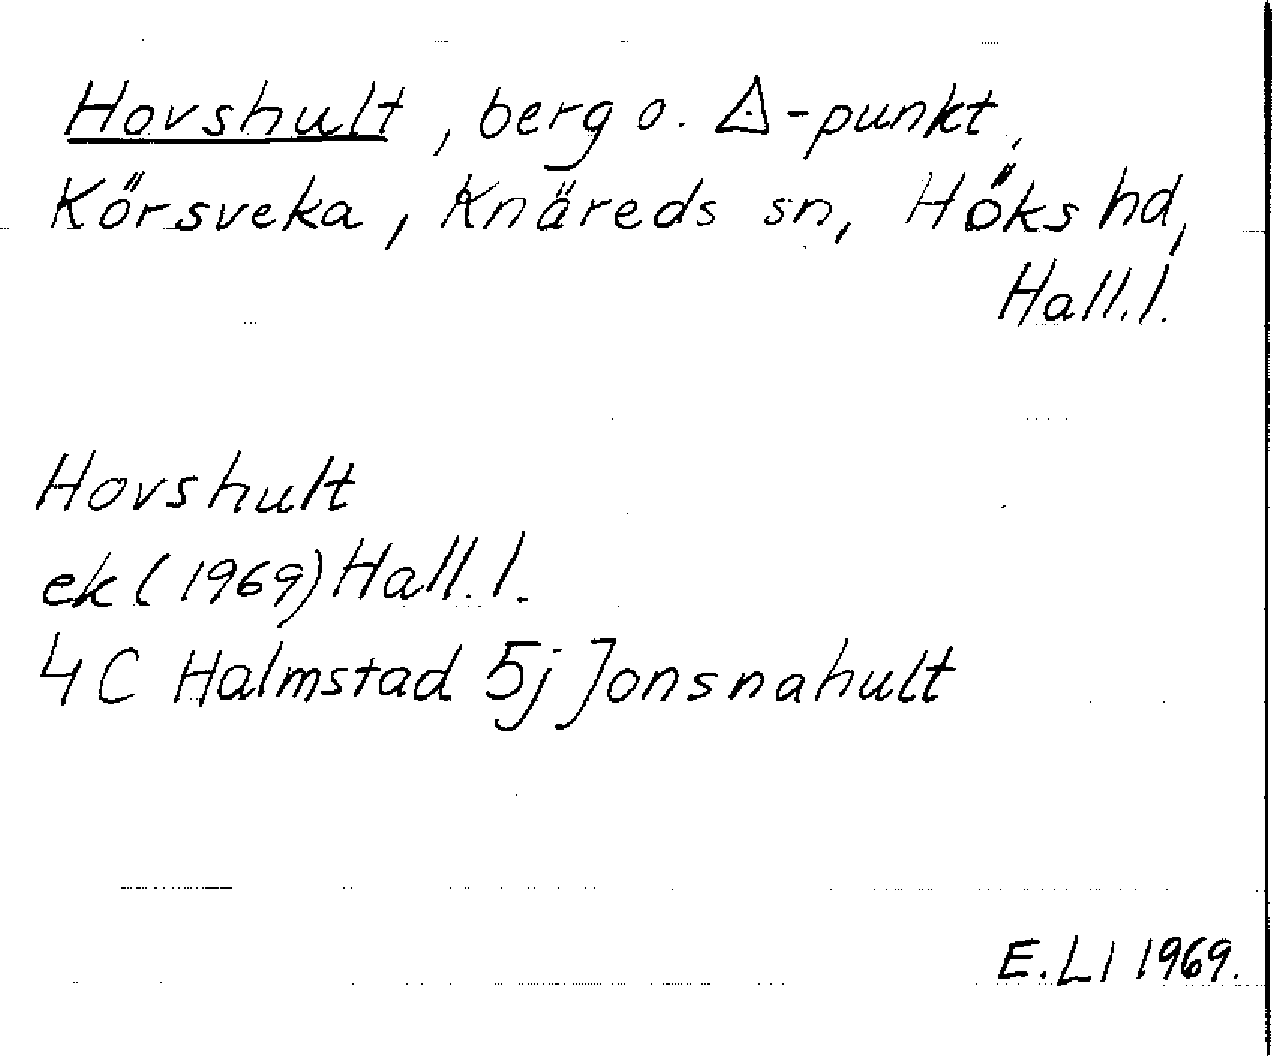 Hovshult, berg o. △-punkt,
Körsveka, Knäreds sn, Höks hd,
Hall.l.
Hovshult
ek (1969) Hall.l.
4C Halmstad 5j Jonsnahult
E.Ll 1969.